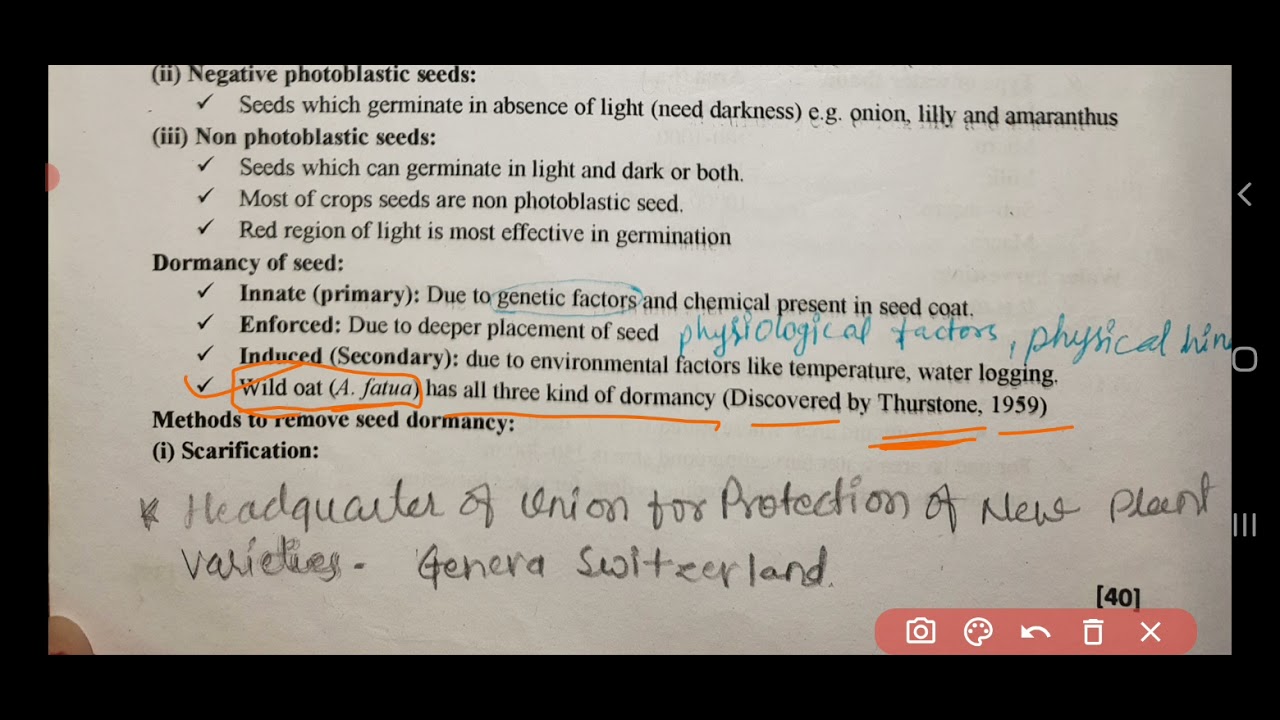 (ii) Negative photoblastic seeds:
✓ Seeds which germinate in absence of light (need darkness) e.g. onion, lilly and amaranthus
(iii) Non photoblastic seeds:
✓ Seeds which can germinate in light and dark or both.
✓ Most of crops seeds are non photoblastic seed.
✓ Red region of light is most effective in germination
Dormancy of seed:
✓ Innate (primary): Due to genetic factors and chemical present in seed coat.
✓ Enforced: Due to deeper placement of seed physiological factors, physical hin
✓ Induced (Secondary): due to environmental factors like temperature, water logging.
✓ Wild oat (A. fatua) has all three kind of dormancy (Discovered by Thurstone, 1959)
Methods to remove seed dormancy:
(i) Scarification:
* Headquarter of Union for Protection of New Plant
Varieties - Genera Switzerland.
[40]